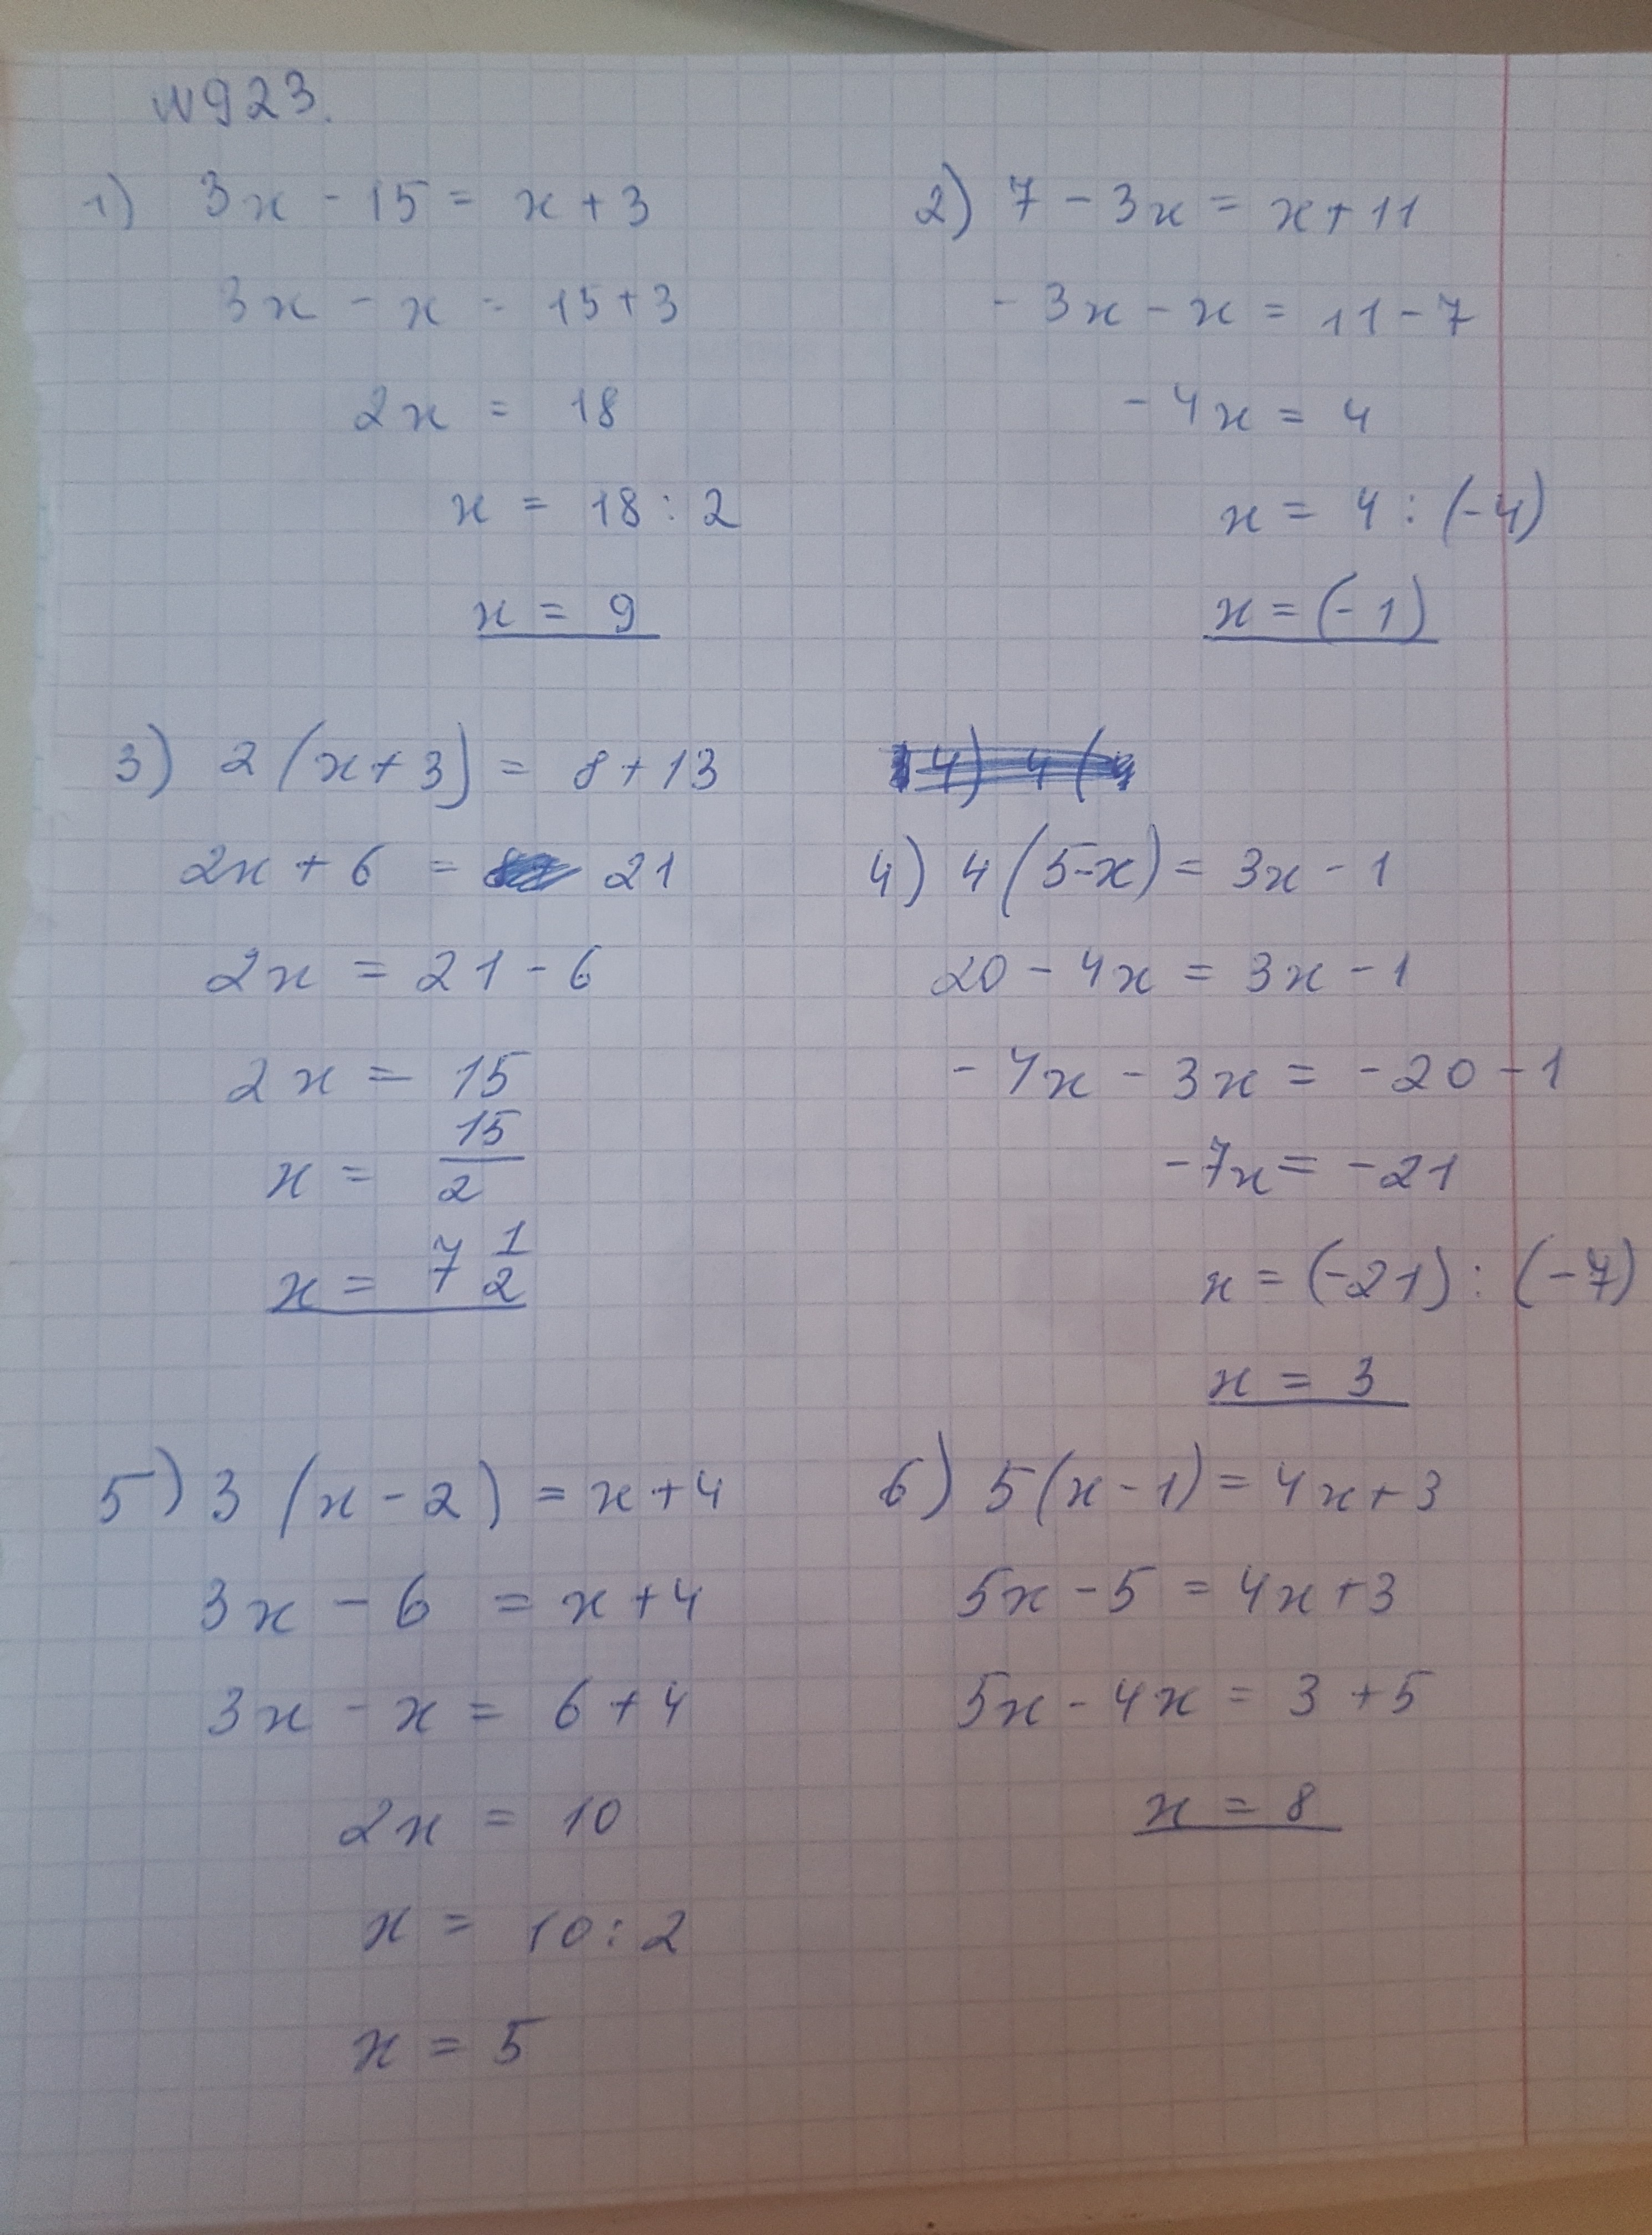 №923.
1) 3x - 15 = x + 3
3x - x = 15 + 3
2x = 18
x = 18 : 2
x = 9
2) 7 - 3x = x + 11
- 3x - x = 11 - 7
- 4x = 4
x = 4 : (-4)
x = (-1)
3) 2 (x + 3) = 8 + 13
2x + 6 = 21
2x = 21 - 6
2x = 15
x = 15/2
x = 7 1/2
4) 4 (
4) 4 (5-x) = 3x - 1
20 - 4x = 3x - 1
- 4x - 3x = -20 - 1
-7x = -21
x = (-21) : (-7)
x = 3
5) 3 (x - 2) = x + 4
3x - 6 = x + 4
3x - x = 6 + 4
2x = 10
x = 10 : 2
x = 5
6) 5(x - 1) = 4x + 3
5x - 5 = 4x + 3
5x - 4x = 3 + 5
x = 8